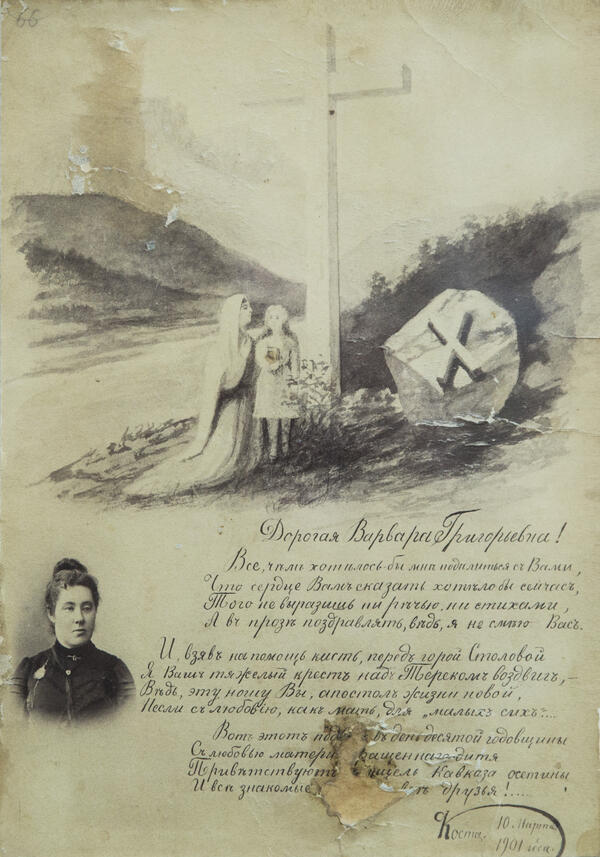 66
Дорогая Варвара Григорьевна!
Все, чѣмъ хотѣлось-бы мнѣ подѣлиться съ Вами,
Что сердце Вамъ сказать хотѣло бы сейчасъ,
Того не выразишь ни рѣчью, ни стихами,
А въ прозѣ поздравлять, вѣдь, я не смѣю Васъ.
И, взявъ на помощь кисть, передъ горой Столовой
Я Вашъ тяжелый крестъ надъ Терекомъ воздвигъ,—
Вѣдь, эту ношу Вы, апостолъ жизни новой,
Несли съ любовью, какъ мать, для „малыхъ сихъ"....
Вотъ этотъ въ день десятой годовщины
Съ любовью матери дитя
Привѣтствуютъ Кавказа осетины
И всѣ знакомые, друзья!.....
Коста. 10 Марта
1901 года.